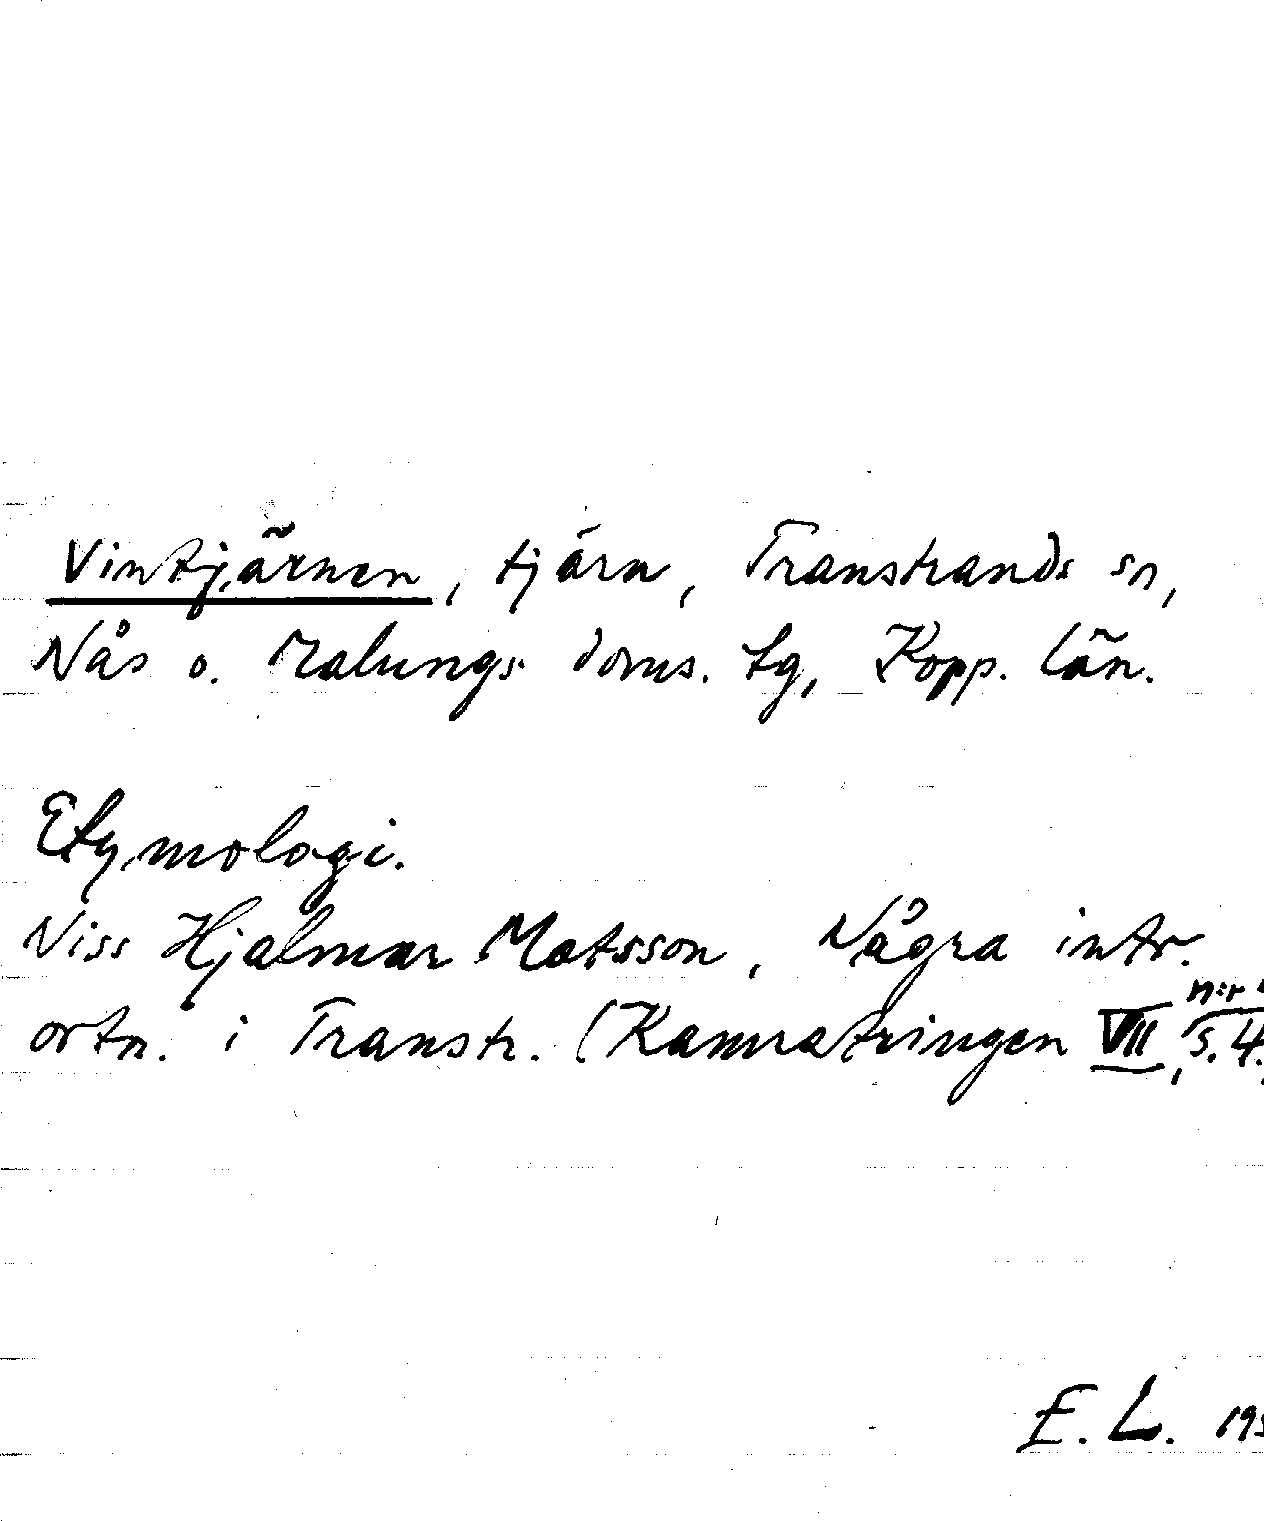 Vintjärnen, tjärn, Transtrands sn,
Nås o. Malungs doms. tg, Kopp. län.
Etymologi.
Niss Hjalmar Matsson, Några intr.
ortn. i Transtr. (Kamratringen VII, n:r s. 4.
E. L. 195